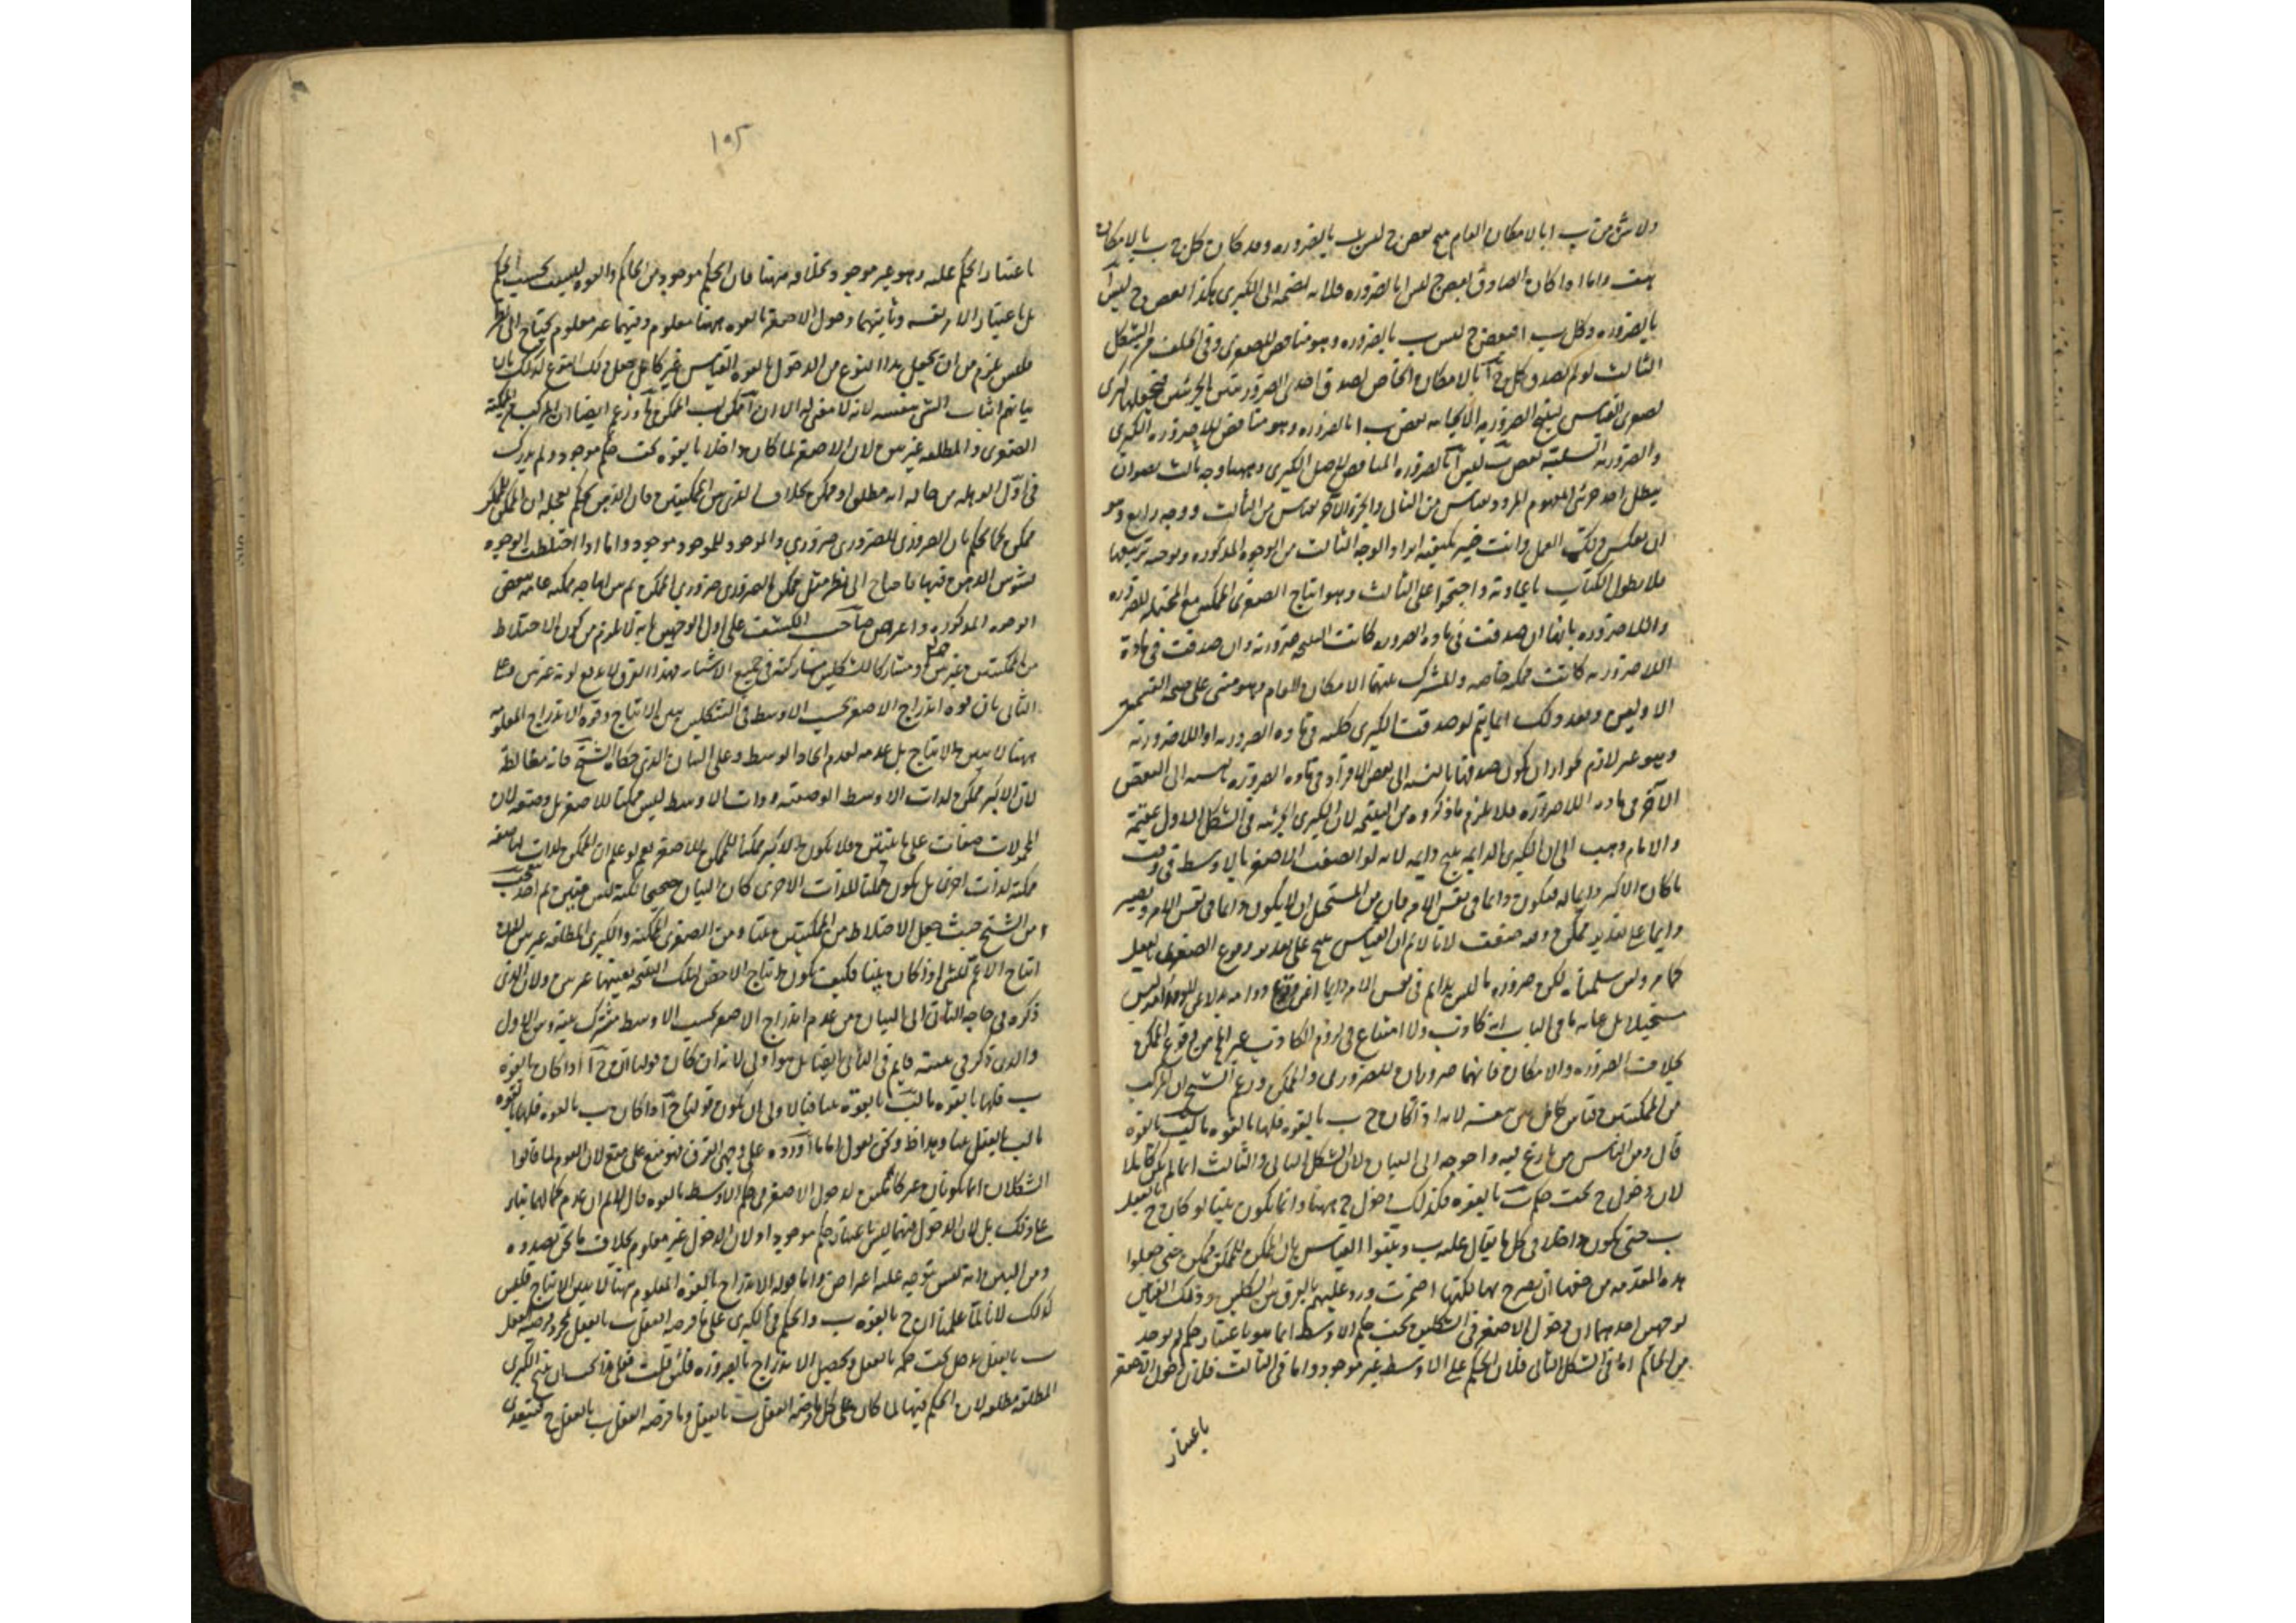 ولا شئ من ب ا بالامكان العام ينتج بعض ج ليس ب بالضروره وقد كان كل ج ب بالامكان
هف واما اذا كان الصادق بعض ج ليس ا بالضروره فلانه نضمه الى الكبرى هكذا بعض ج ليس ا
بالضروره وكل ب ا فبعض ج ليس ب بالضروره وهو مناقض للصغرى وفي الخلف من الشكل
الثالث لو لم يصدق كل ج ا بالامكان الخاص لصدق احدى الضروريتين الجزئيتين فنجعلها كبرى
لصغرى القياس لينتج الضرورية الايجابيه بعض ب ا بالضروره وهو مناقض للاضروره الكبرى
والضروريه السلبية بعض ب ليس ا بالضروره المناقض لاصل الكبرى وههنا وجه ثالث بعد ان
يبطل احد جزئى المفهوم المردد بقياس من الثانى والجزء الآخر بقياس من الثالث ووجه رابع وهو
ان يعكس ذلك العمل وانت خبير بكيفيه ايراد الوجه الثالث من الوجوه المذكوره وبوجه تربيعها
فلا يطول الكتاب باعادته واحتجوا على الثالث وهو انتاج الصغرى الممكنه مع المحتمله للضروره
واللاضروره بانها ان صدقت فى ماده الضروره كانت النتيجه ضروريه وان صدقت فى مادة
اللاضروريه كانت ممكنه خاصه والمشترك بينهما الامكان العام وهو مبنى على صحه القسمين
الاولين وبعد ذلك انما يتم لو صدقت الكبرى كليه فى ماده الضروريه او اللاضروريه
وهو غير لازم لجواز ان يكون صدقها بالنسبه الى بعض الافراد فى ماده الضروره بالنسبه الى البعض
الآخر فى ماده اللاضروره فلا يلزم ما ذكروه من النتيجه لان الكبرى الجزئيه فى الشكل الاول عقيمة
والامام ذهب الى ان الكبرى الدايمه ينتج دايمه لانه لو اتصف الاصغر بالاوسط فى وقت
ما كان الاكبر دايما له فيكون دايما فى نفس الامر فان من المستحيل ان لا يكون دايما فى نفس الامر ويصير
دايما على تقدير ممكن وفيه ضعف لانا لا نم ان القياس ينتج على تقدير وقوع الصغرى بالفعل
كما مر ولئن سلمناه لكن ضروره ما ليس بدايم فى نفس الامر دايما
مستحيلا بل غايه ما فى الباب انه كاذب ولا امتناع فى لزوم الكاذب غير المحال من وقوع الممكن
بخلاف الضروره والامكان فانهما ضروريان للضرورى والممكن وزعم الشيخ ان المركب
من الممكنتين قياس كامل بين بنفسه لانه اذا كان ج ب بالقوه فلها بالقوه ما لب بالقوة
قال ومن الناس من نازع فيه واحوجه الى البيان لان الشكل الثانى والثالث انما لم يكن كاملا
لان دخول ج تحت حكم ب بالقوه فكذلك دخول ج ههنا وانما يكون بينا لو كان ج بالفعل
ب حتى يكون داخلا فى كل ما يقال عليه ب وبينوا القياس بان الممكن للممكن ممكن حتى جعلوا
هذه المقدمه من حقها ان يصرح بها لكنها اضمرت ورد عليهم بالفرق بين الشكلين وذلك القياس
بوجهين احدهما ان دخول الاصغر فى الشكلين تحت حكم الاوسط انما هو باعتبار حكم لم يوجد
من الحاكم اما فى الشكل الثانى فلان الحكم على الاوسط غير موجود واما فى الثالث فلان دخول الاصغر
باعتبار
١٠٥
باعتبار الحكم عليه وهو غير موجود بخلافه ههنا فان الحكم موجود من الحاكم والقوه ليست بحسب الحكم
بل باعتبار الامر نفسه وثانيهما دخول الاصغر بالقوه ههنا معلوم وفيهما غير معلوم يحتاج الى نظر
فليس يلزم من ان يجعل هذا النوع من الدخول بالقوه القياس غير كامل جعل ذلك النوع كذلك بان
بيانهم اثبات الشئ بنفسه لانه لا معنى له الا ان الممكن لب الممكن لج آ وزعم ايضا ان المركب من الممكنة
الصغرى والمطلقه غير بين لان الاصغر لما كان داخلا بالقوه تحت حكم موجود ولم يدرك
فى اوّل الوهله من حاله انه مطلق او ممكن بخلاف القرينين الممكنتين فان الذهن يحكم بعجله ان الممكن للممكن
ممكن كما يحكم بان الضرورى للضرورى ضروري والموجود للموجود موجود واما اذا اختلطت الوجوه
تشوش الذهن فيها فاحتاج الى نظر مثل ممكن بالضرورى ضرورى الممكن ثم بين انتاجه ممكنه عامه ببعض
الوجوه المذكوره واعرض صاحب الكشف على اول الوجهين بانه لا يلزم من كون الاختلاط
من الممكنتين غير بين ومشاركا للشكلين مشاركته فى جميع الاشياء فهذا الفرق لا يدفع كونه غير بين وعلى
الثانى بان قوه اندراج الاصغر تحت الاوسط فى الشكلين بين الانتاج وقوه الاندراج المعلومه
ههنا لا يبين الانتاج بل عدمه لعدم اتحاد الوسط وعلى البيان الذى حكاه الشيخ فانه مغالطة
لان الاكبر ممكن لذات الاوسط الوصفيه وذات الاوسط ليس ممكنا للاصغر بل وصفه لان
المحمولات صفات على ما بينتم فلا يكون الاكبر ممكنا للممكن للاصغر نعم لو علم ان الممكن لذات لها صفه
ممكنه لذات اخرى بل يكون ممكنا للذات الاخرى كان البيان صحيحا لكنه ليس ببين ثم اخذ يتعجب
من الشيخ حيث جعل الاختلاط من الممكنتين بينا ومن الصغرى الممكنه والكبرى المطلقه غير بين فان
انتاج الاعم للشئ اذا كان بينا فكيف يكون انتاج الاخص لتلك النتيجه بعينها غير بين ولان الذى
ذكره فى حاجه الثانى الى البيان من عدم اندراج الاصغر بحسب الاوسط مشترك بينه وبين الاول
والذى ذكر فى بينه قايم فى الثانى ايضا بل هو اولى لانه ان كان قولنا ان ج آ اذا كان بالقوة
ب فلها بالقوه ما لب بالقوة بينا فبالاولى ان يكون قولنا ج آ اذا كان ب بالقوه فلها بالقوه
ما لب بالفعل بينا وهذا ظ ونحن نقول اما ما اورده على وجهى الفرق فهو منع على منع لان القوم لما قالوا
الشكلان انما يكونان غير كاملين لدخول الاصغر فى حكم الاوسط بالقوه قال لا نم ان عدم كمالهما بناء
على ذلك بل لان الدخول فيهما ليس باعتبار حكم موجود او لان الدخول غير معلوم بخلاف ما نحن بصدده
ومن البين انه ليس يتوجه عليه اعتراض واما قوله الاندراج بالقوه المعلوم ههنا لا يبين الانتاج فليس
كذلك لانا لما علمنا ان ج بالقوه ب والحكم فى الكبرى على ما فرضه العقل ب بالفعل فبمجرد فرضه بالفعل
ب بالفعل يدخل تحت حكم بالفعل ويحصل الاندراج بالضروره فلئن قلت فعلى هذا كان ينتج الكبرى
المطلقه مطلقه لان الحكم فيها لما كان على كل ما فرضه العقل ب بالفعل وما فرضه العقل ب بالفعل ج فيتعدى